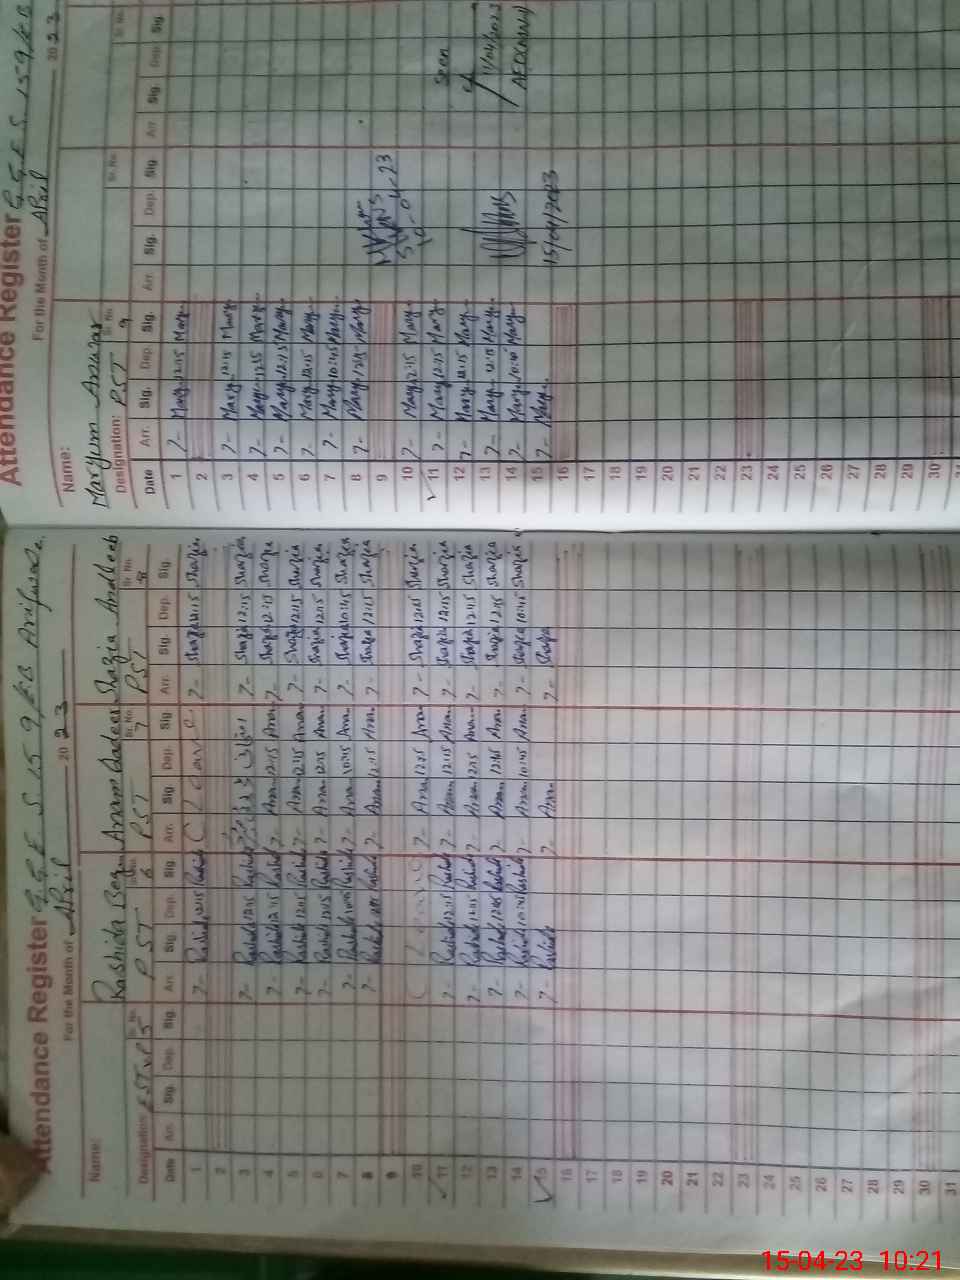 Attendance Register G.G.E.S. 159/EB Arifwala.
For the Month of April 2023
Name: Rashida Begum Anam Sadeer Shazia Andleeb
Designation: EST Sr. No. 5 PST Sr. No. 6 PST Sr. No. 7 PST Sr. No. 8
Date Arr. Sig. Dep. Sig. Arr. Sig. Dep. Sig. Arr. Sig. Dep. Sig. Arr. Sig. Dep. Sig.
1 7- Rashida 12:15 Rashida Leave 7- Shazia 12:15 Shazia
2
3 7- Rashida 12:15 Rashida 7- Shazia 12:15 Shazia
4 7- Rashida 12:15 Rashida 7- Anam 12:15 Anam 7- Shazia 12:15 Shazia
5 7- Rashida 12:15 Rashida 7- Anam 12:15 Anam 7- Shazia 12:15 Shazia
6 7- Rashida 12:15 Rashida 7- Anam 12:15 Anam 7- Shazia 12:15 Shazia
7 7- Rashida 10:45 Rashida 7- Anam 10:45 Anam 7- Shazia 10:45 Shazia
8 7- Rashida 12:15 Rashida 7- Anam 12:15 Anam 7- Shazia 12:15 Shazia
9
10 Leave 7- Anam 12:15 Anam 7- Shazia 12:15 Shazia
11 7- Rashida 12:15 Rashida 7- Anam 12:15 Anam 7- Shazia 12:15 Shazia
12 7- Rashida 12:15 Rashida 7- Anam 12:15 Anam 7- Shazia 12:15 Shazia
13 7- Rashida 12:15 Rashida 7- Anam 12:15 Anam 7- Shazia 12:15 Shazia
14 7- Rashida 10:45 Rashida 7- Anam 10:45 Anam 7- Shazia 10:45 Shazia
15 7- Rashida 7- Anam 7- Shazia
16
17
18
19
20
21
22
23
24
25
26
27
28
29
30
31
Attendance Register G.G.E.S 159/EB
For the Month of April 2023
Name: Maryum Anwar
Designation: PST Sr. No. 9 Sr. No. Sr. No.
Date Arr. Sig. Dep. Sig. Arr. Sig. Dep. Sig. Arr. Sig. Dep. Sig.
1 7- Mary 12:15 Mary
2
3 7- Mary 12:15 Mary
4 7- Mary 12:15 Mary
5 7- Mary 12:15 Mary
6 7- Mary 12:15 Mary
7 7- Mary 10:45 Mary
8 7- Mary 12:15 Mary
9
10 7- Mary 12:15 Mary 10-04-23
11 7- Mary 12:15 Mary Seen
12 7- Mary 12:15 Mary
13 7- Mary 12:15 Mary 11/04/2023
14 7- Mary 10:45 Mary
15 7- Mary 15/04/2023
16
17
18
19
20
21
22
23
24
25
26
27
28
29
30
31
15-04-23 10:21